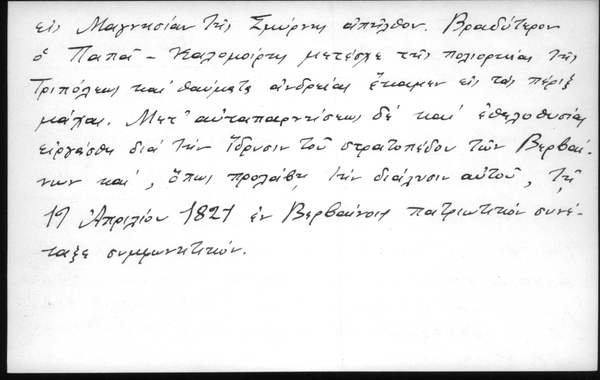 εἰς Μαγνησίαν τῆς Σμύρνης ἀπῆλθον. Βραδύτερον
ὁ Παπᾶ - Καλομοίρης μετέσχε τῆς πολιορκίας τῆς
Τριπόλεως καὶ θαύματα ἀνδρείας ἔκαμεν εἰς τὰς πέριξ
μάχας. Μετ' αὐταπαρνήσεως δὲ καὶ ἐθελοθυσίας
εἰργάσθη διὰ τὴν ἵδρυσιν τοῦ στρατοπέδου τῶν Βερβαί-
νων καί, ὅπως προλάβῃ τὴν διάλυσιν αὐτοῦ, τῇ
19 Ἀπριλίου 1821 ἐν Βερβαίνοις πατριωτικόν συνέ-
ταξε συμφωνητικόν.